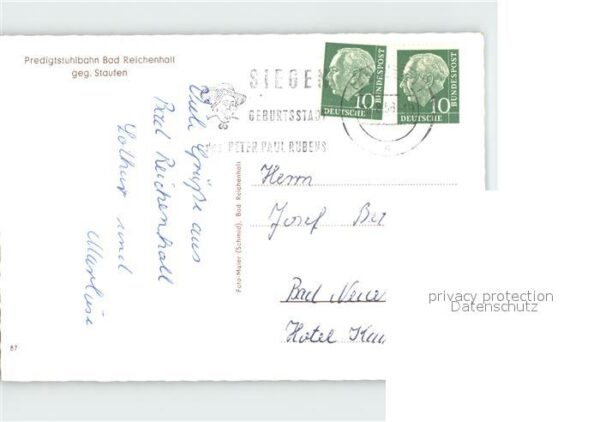 Predigtstuhlbahn Bad Reichenhall
geg. Staufen
Viele Grüße aus
Bad Reichenhall
Lothar und
Marlise
67
Foto-Maier (Schmid), Bad Reichenhall
SIEGEN
GEBURTSSTADT
PETER PAUL RUBENS
10
DEUTSCHE
BUNDESPOST
10
DEUTSCHE
BUNDESPOST
Herrn
Josef
Bad
Hotel
privacy protection
Datenschutz